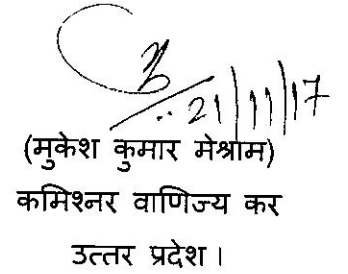 21/11/17
(मुकेश कुमार मेश्राम)
कमिश्नर वाणिज्य कर
उत्तर प्रदेश।